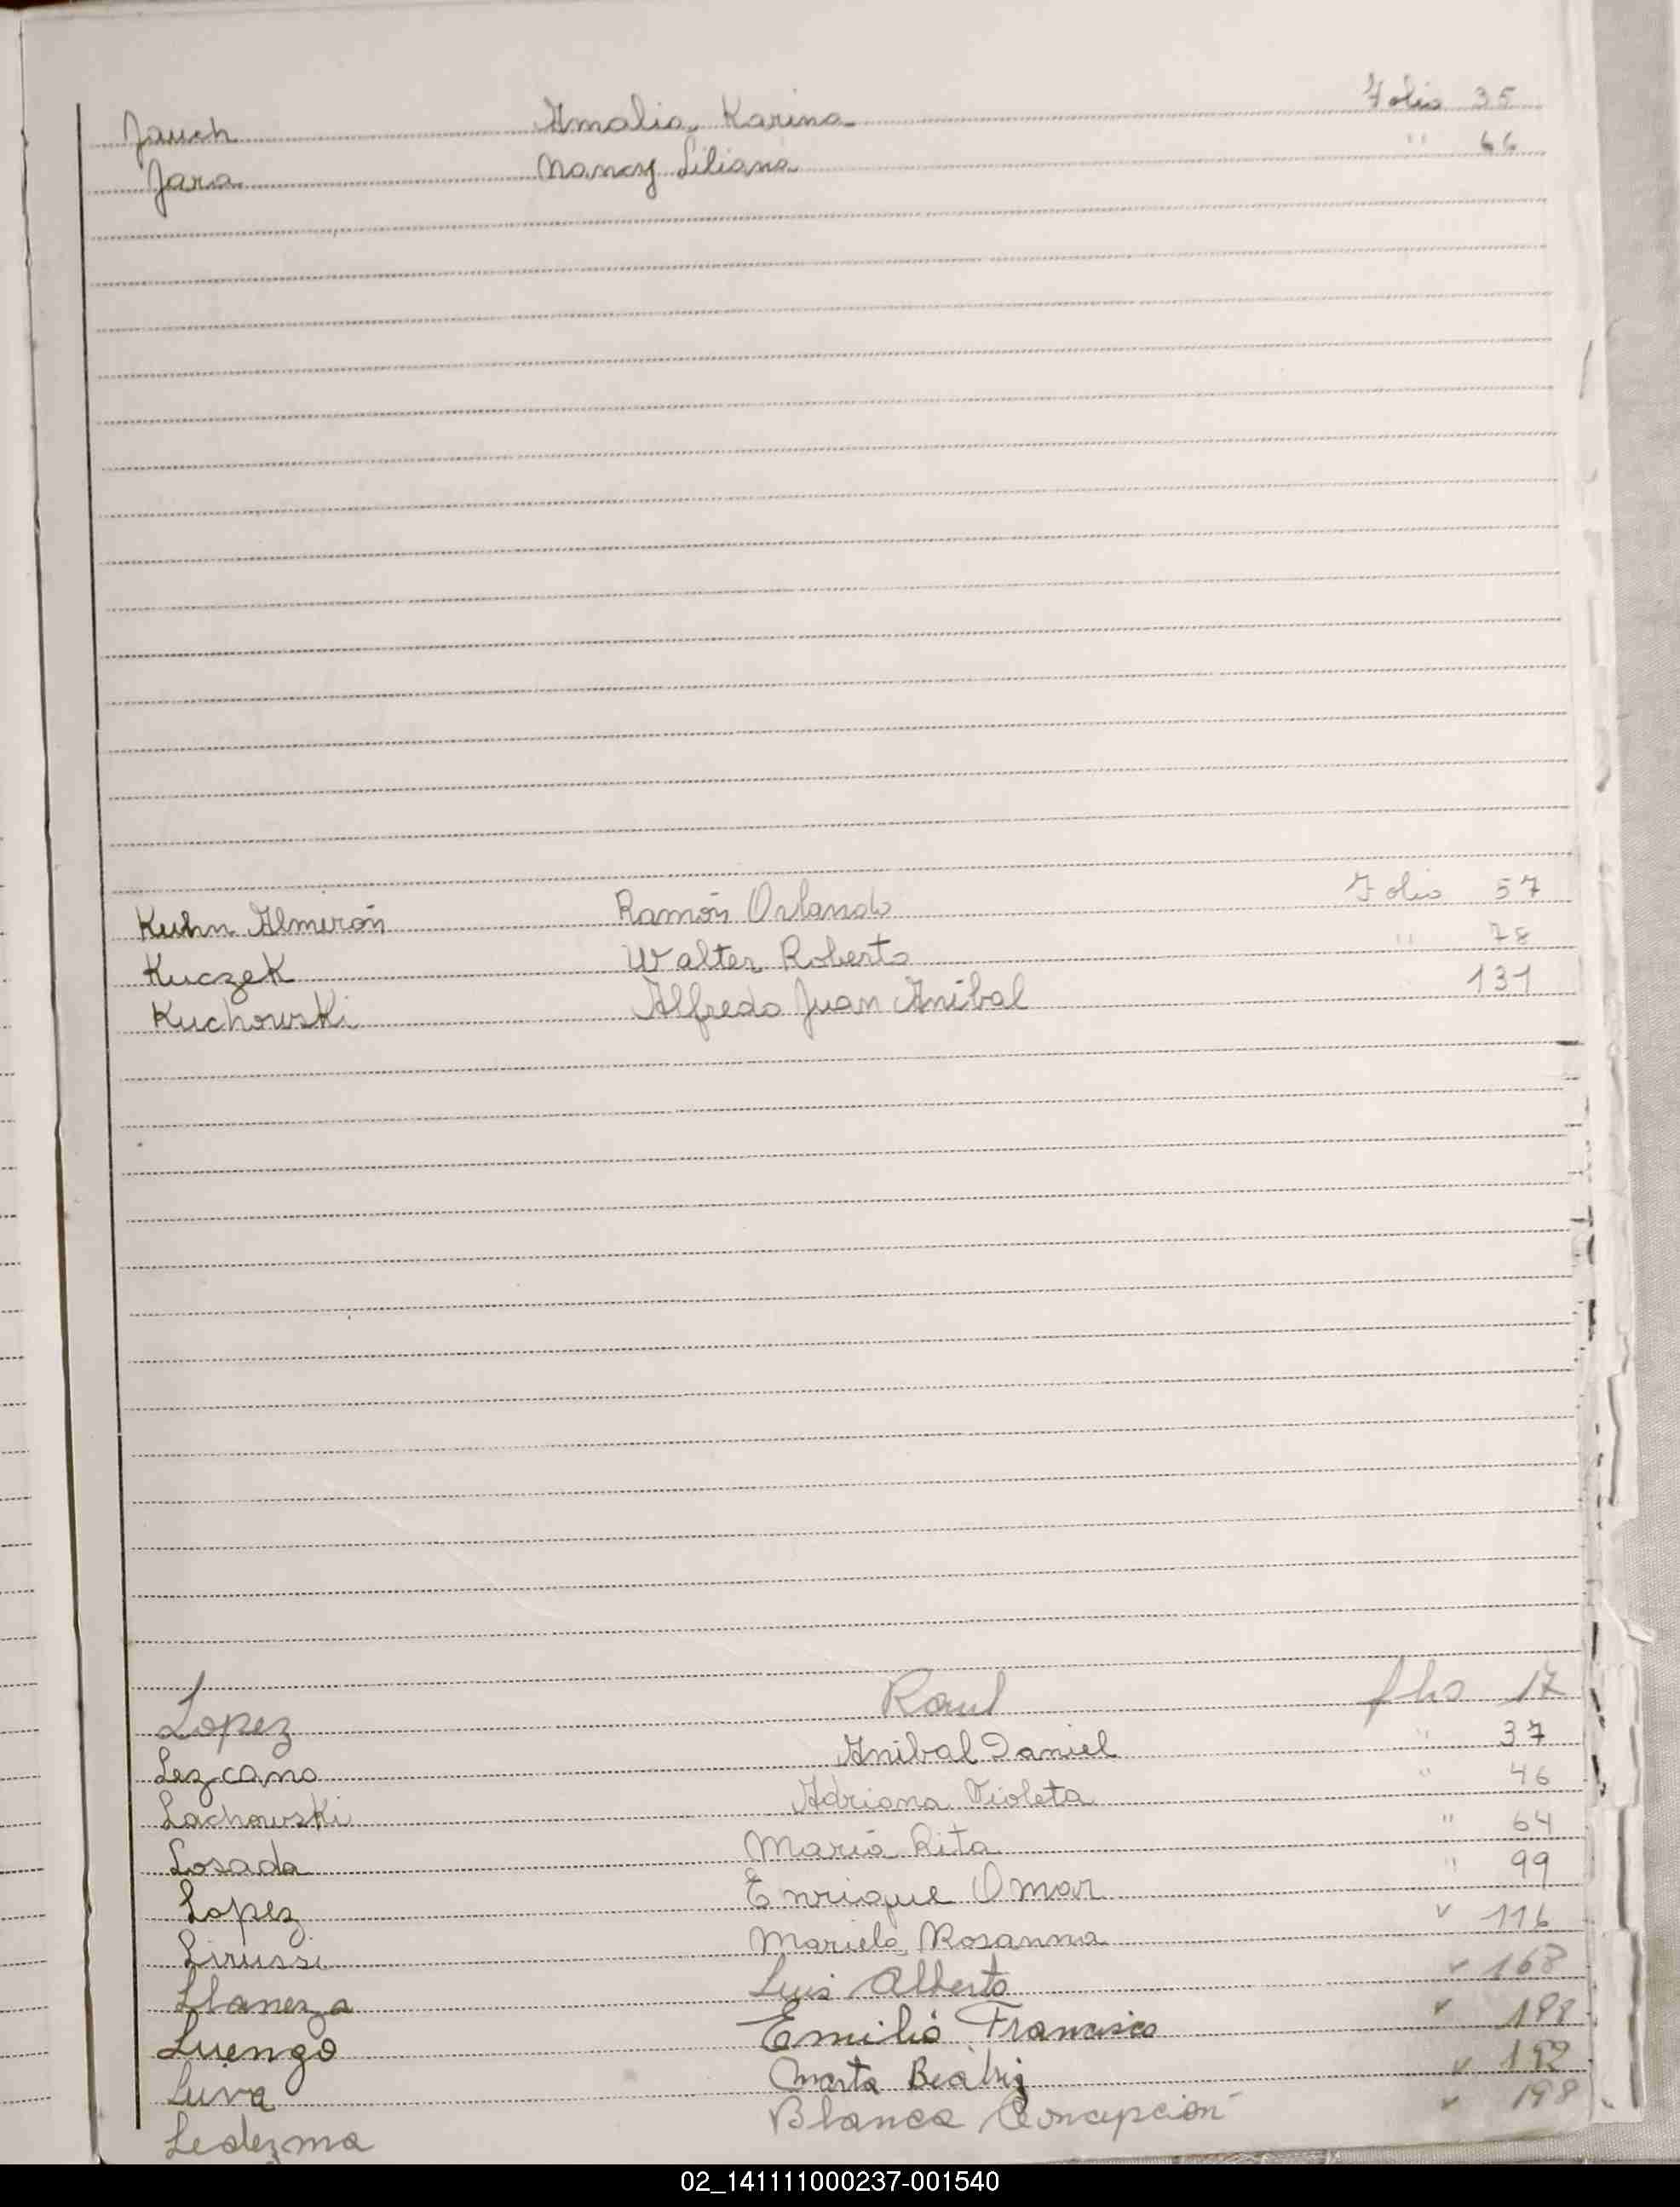 Jauch Amalia Karina Folio 35
Jara Nancy Liliana " 66
Kuhn Almirón Ramón Orlando Folio 57
Kuczek Walter Roberto " 78
Kuchowski Alfredo Juan Anibal 131
Lopez Raul flio 17
Lezcano Anibal Daniel " 37
Lachowski Adriana Violeta " 46
Losada Maria Rita " 64
Lopez Enrique Omar " 99
Lirussi Mariela Rosanna " 116
Llaneza Luis Alberto " 168
Luengo Emilio Francisco "
Luva Marta Beatriz " 192
Ledezma Blanca Concepción " 198
02_141111000237-001540